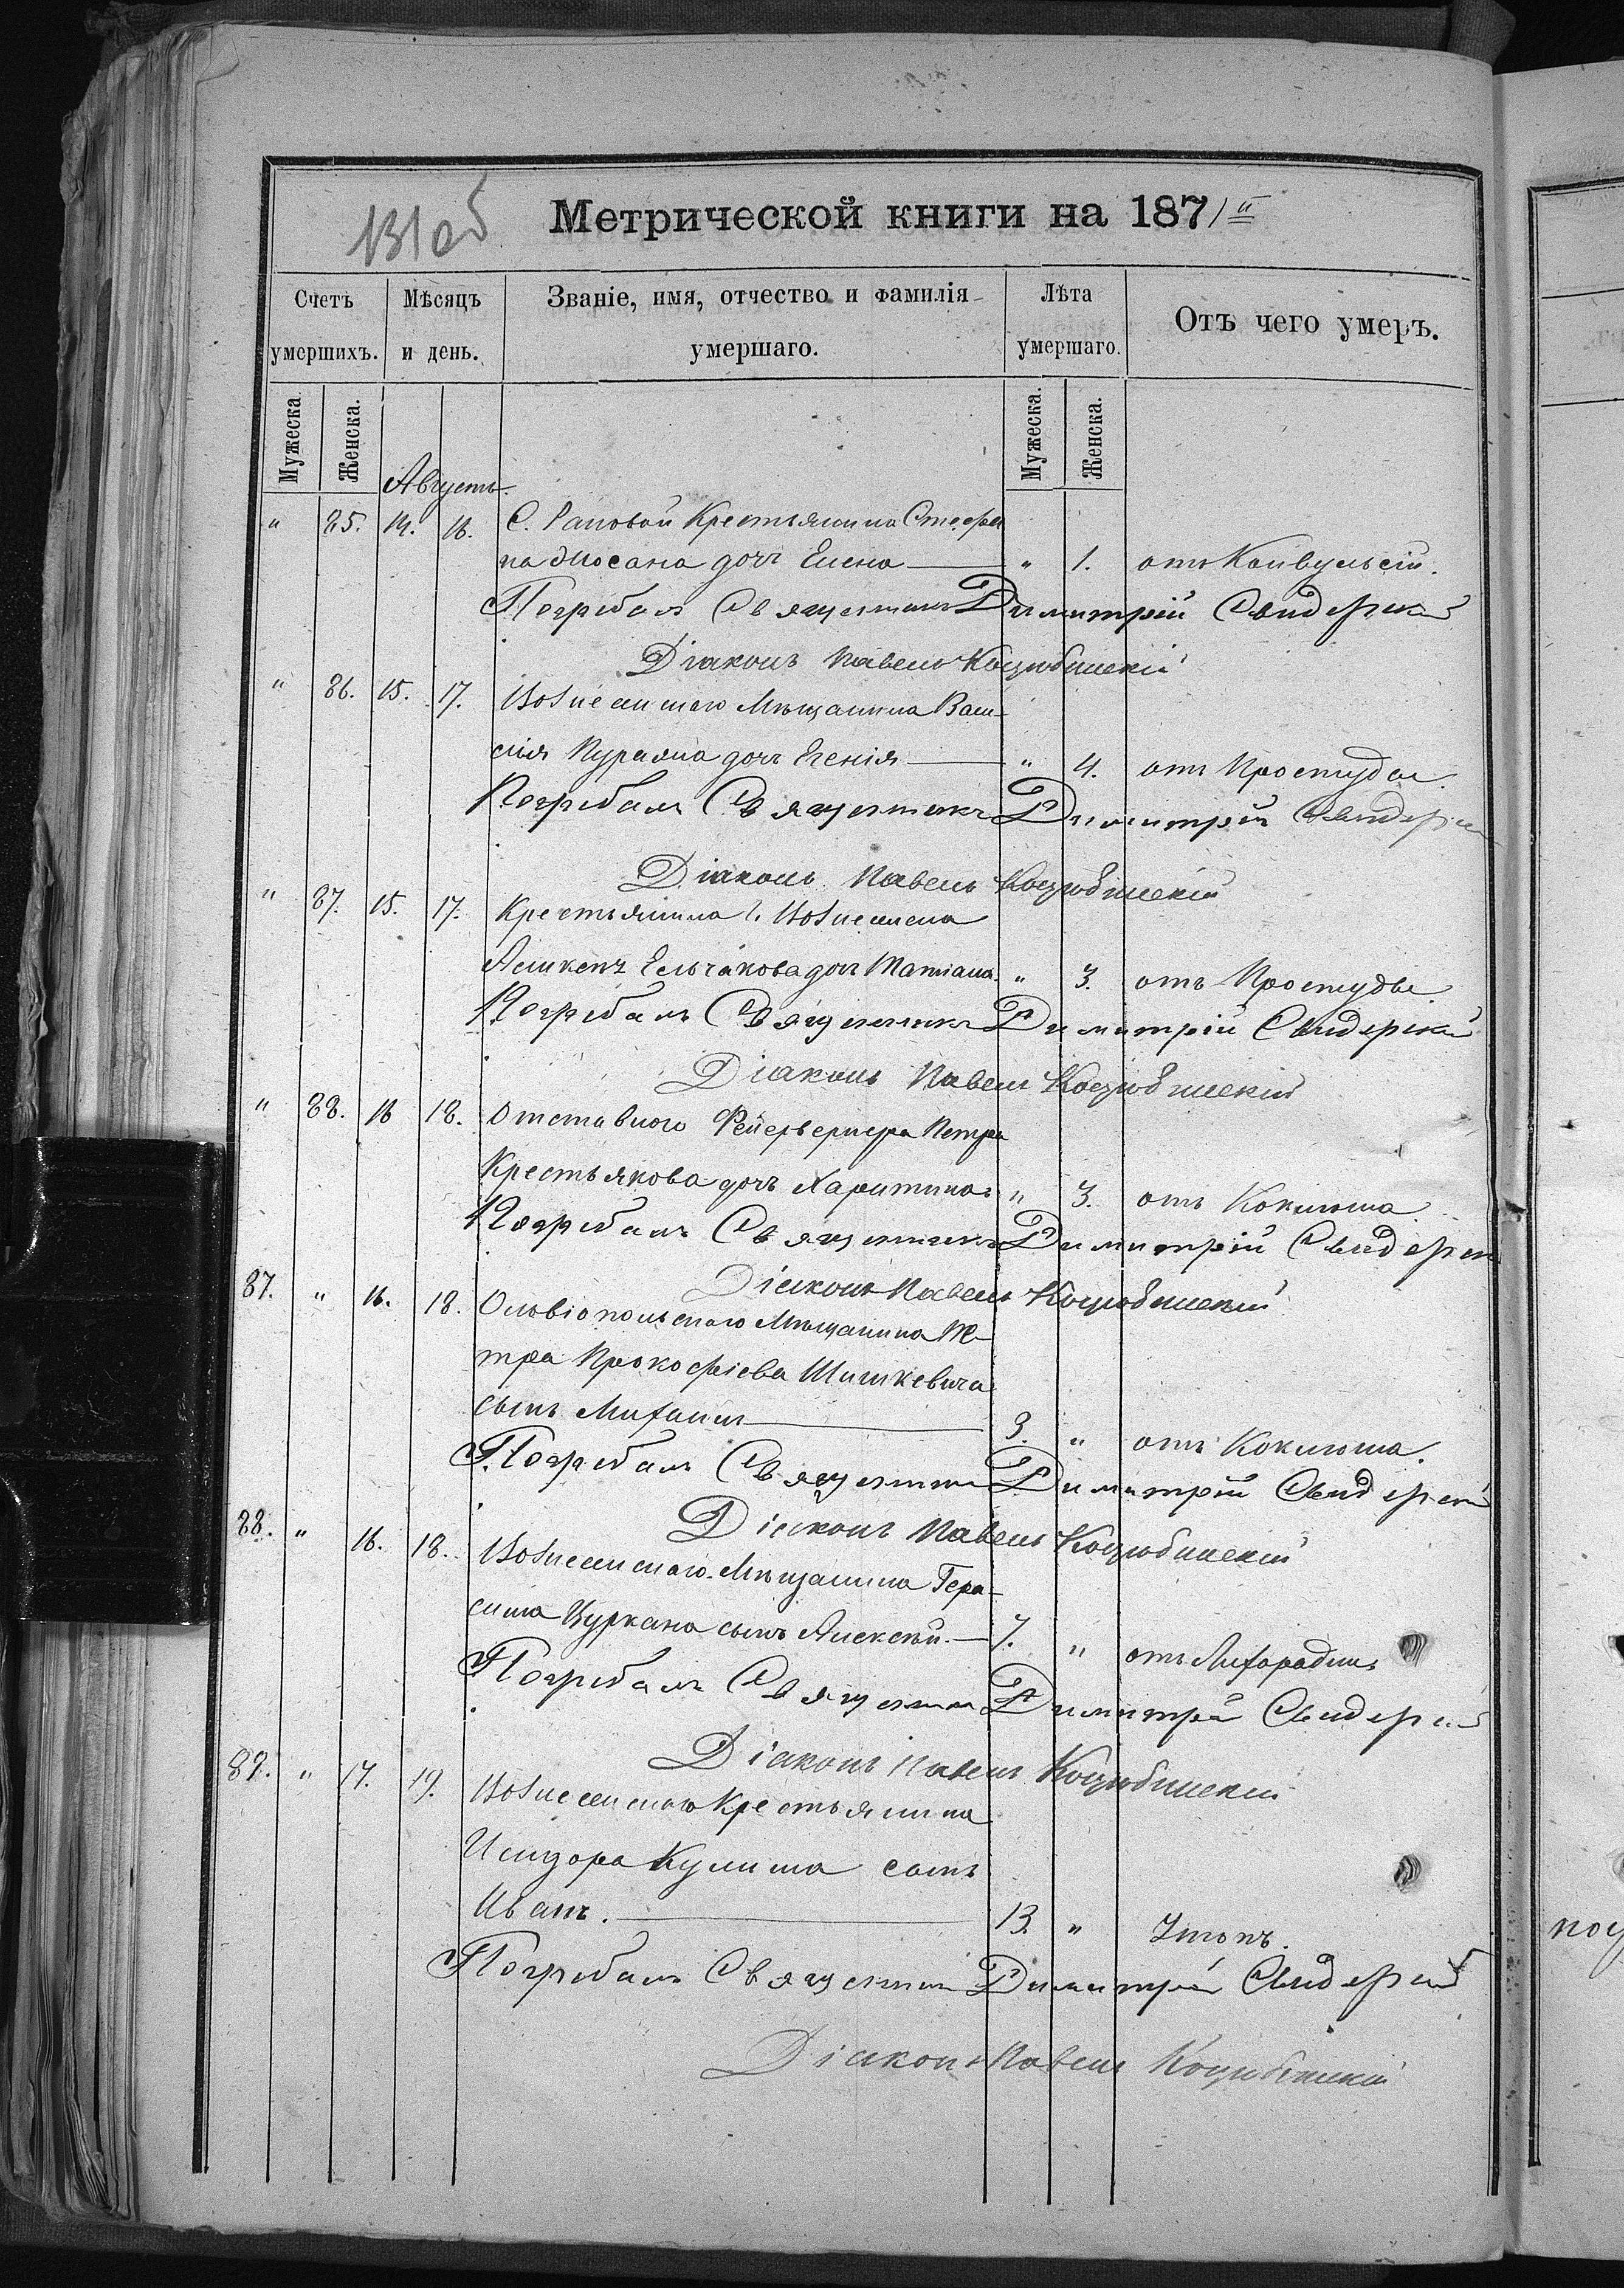 131об
Метрической книги на 1871й
Счетъ умершихъ.
Мѣсяцъ и день.
Званіе, имя, отчество и фамилія умершаго.
Лѣта умершаго.
Отъ чего умеръ.
Мужеска.
Женска.
Мужеска.
Женска.
Августъ.
" 85. 14. 16. С. Раковой Крестьянина Стефа
на Мосана дочь Елена — " 1. отъ Конвульсіи.
Погребалъ Священникъ Димитрій Свидерскій
Діаконъ Павелъ Коцюбинскій
" 86. 15. 17. Вознесенскаго Мѣщанина Васи-
лія дочь — " 4. отъ Простуды.
Погребалъ Священникъ Димитрій Свидерскій
Діаконъ Павелъ Коцюбинскій
" 87. 15. 17. Крестьянина г. Вознесенска
дочь Татіана " 3. отъ Простуды.
Погребалъ Священникъ Димитрій Свидерскій
Діаконъ Павелъ Коцюбинскій
" 88. 16 18. Отставного Фейерверкера Петра
Крестьякова дочь Харитина " 3. отъ Коклюша.
Погребалъ Священникъ Димитрій Свидерскій
Діаконъ Павелъ Коцюбинскій
87. " 16. 18. Ольвіопольскаго Мѣщанина Пе-
тра Прокофіева Шишкевича
сынъ Михаилъ — 3. " отъ Коклюша.
Погребалъ Священникъ Димитрій Свидерскій
Діаконъ Павелъ Коцюбинскій
88. " 16. 18. Вознесенскаго Мѣщанина Гера-
сима Цуркана сынъ Алексѣй. — 7. " отъ Лихорадки
Погребалъ Священникъ Димитрій Свидерскій
Діаконъ Павелъ Коцюбинскій
89. " 17. 19. Вознесенскаго Крестьянина
Исидора Кулиша сынъ
Иванъ. — 13. " Утопъ.
Погребалъ Священникъ Димитрій Свидерскій
Діаконъ Павелъ Коцюбинскій